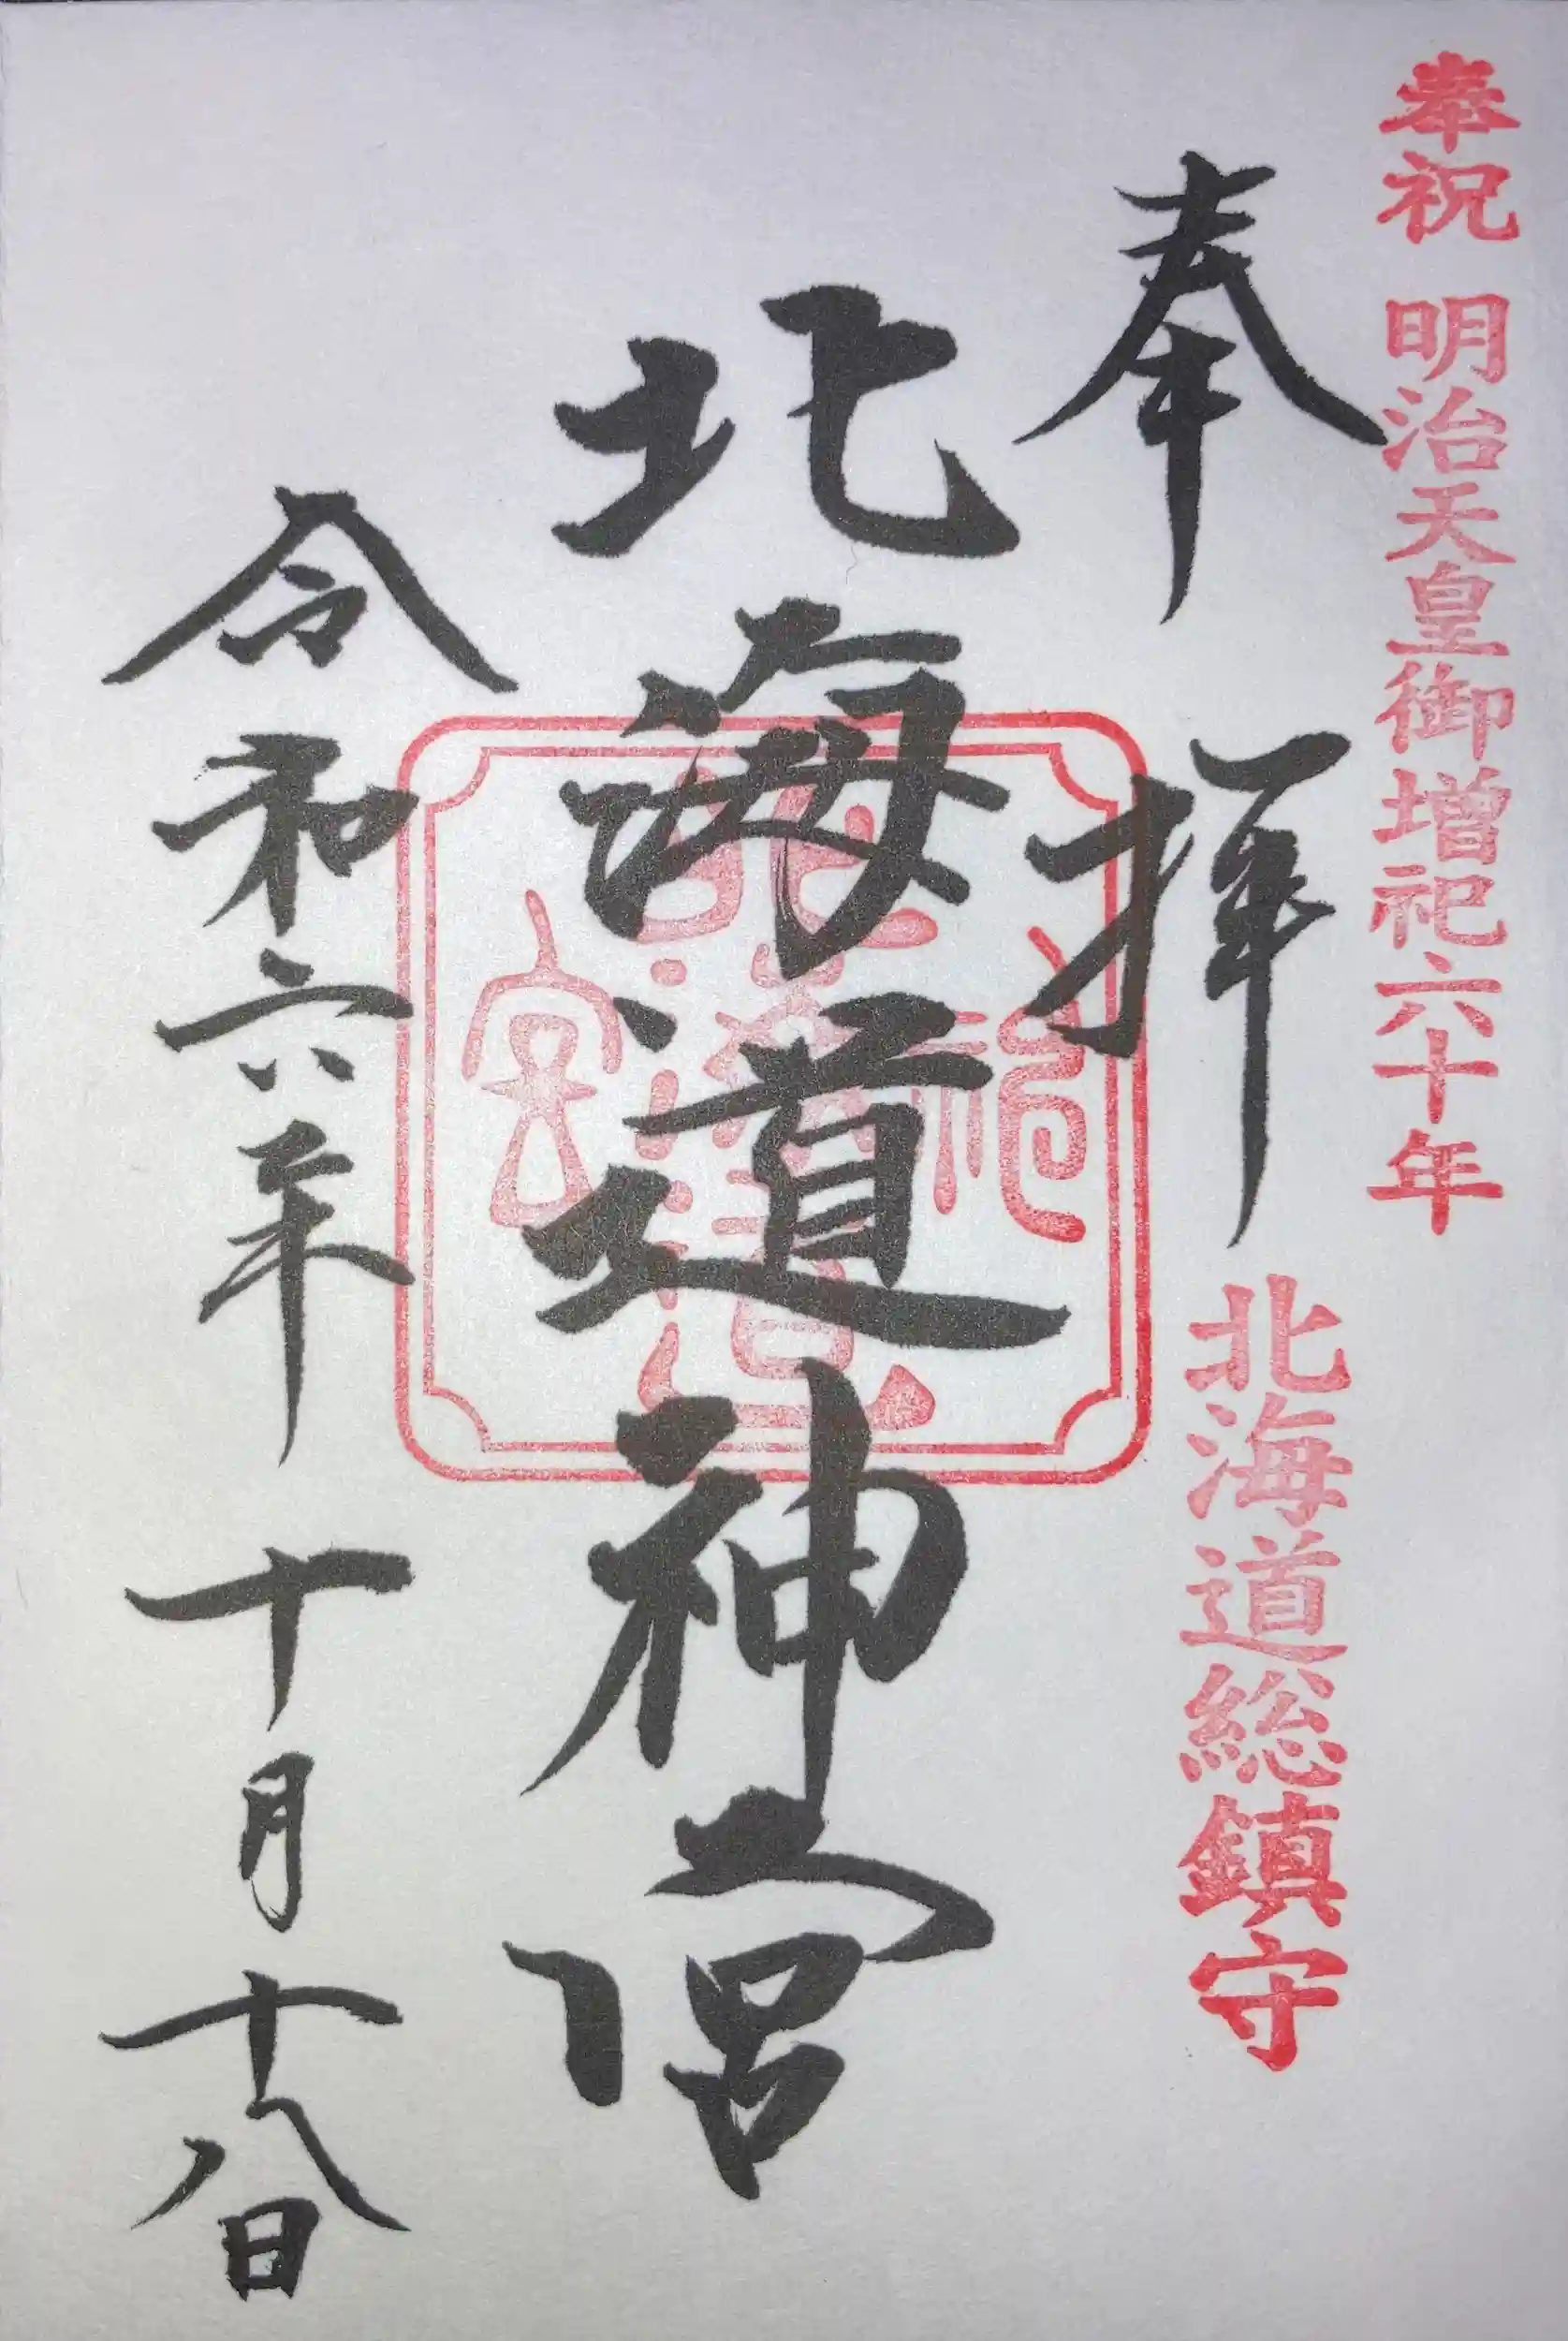 奉祝 明治天皇御増祀六十年
奉拝
北海道総鎮守
北海道神宮
令和六年 十月十八日